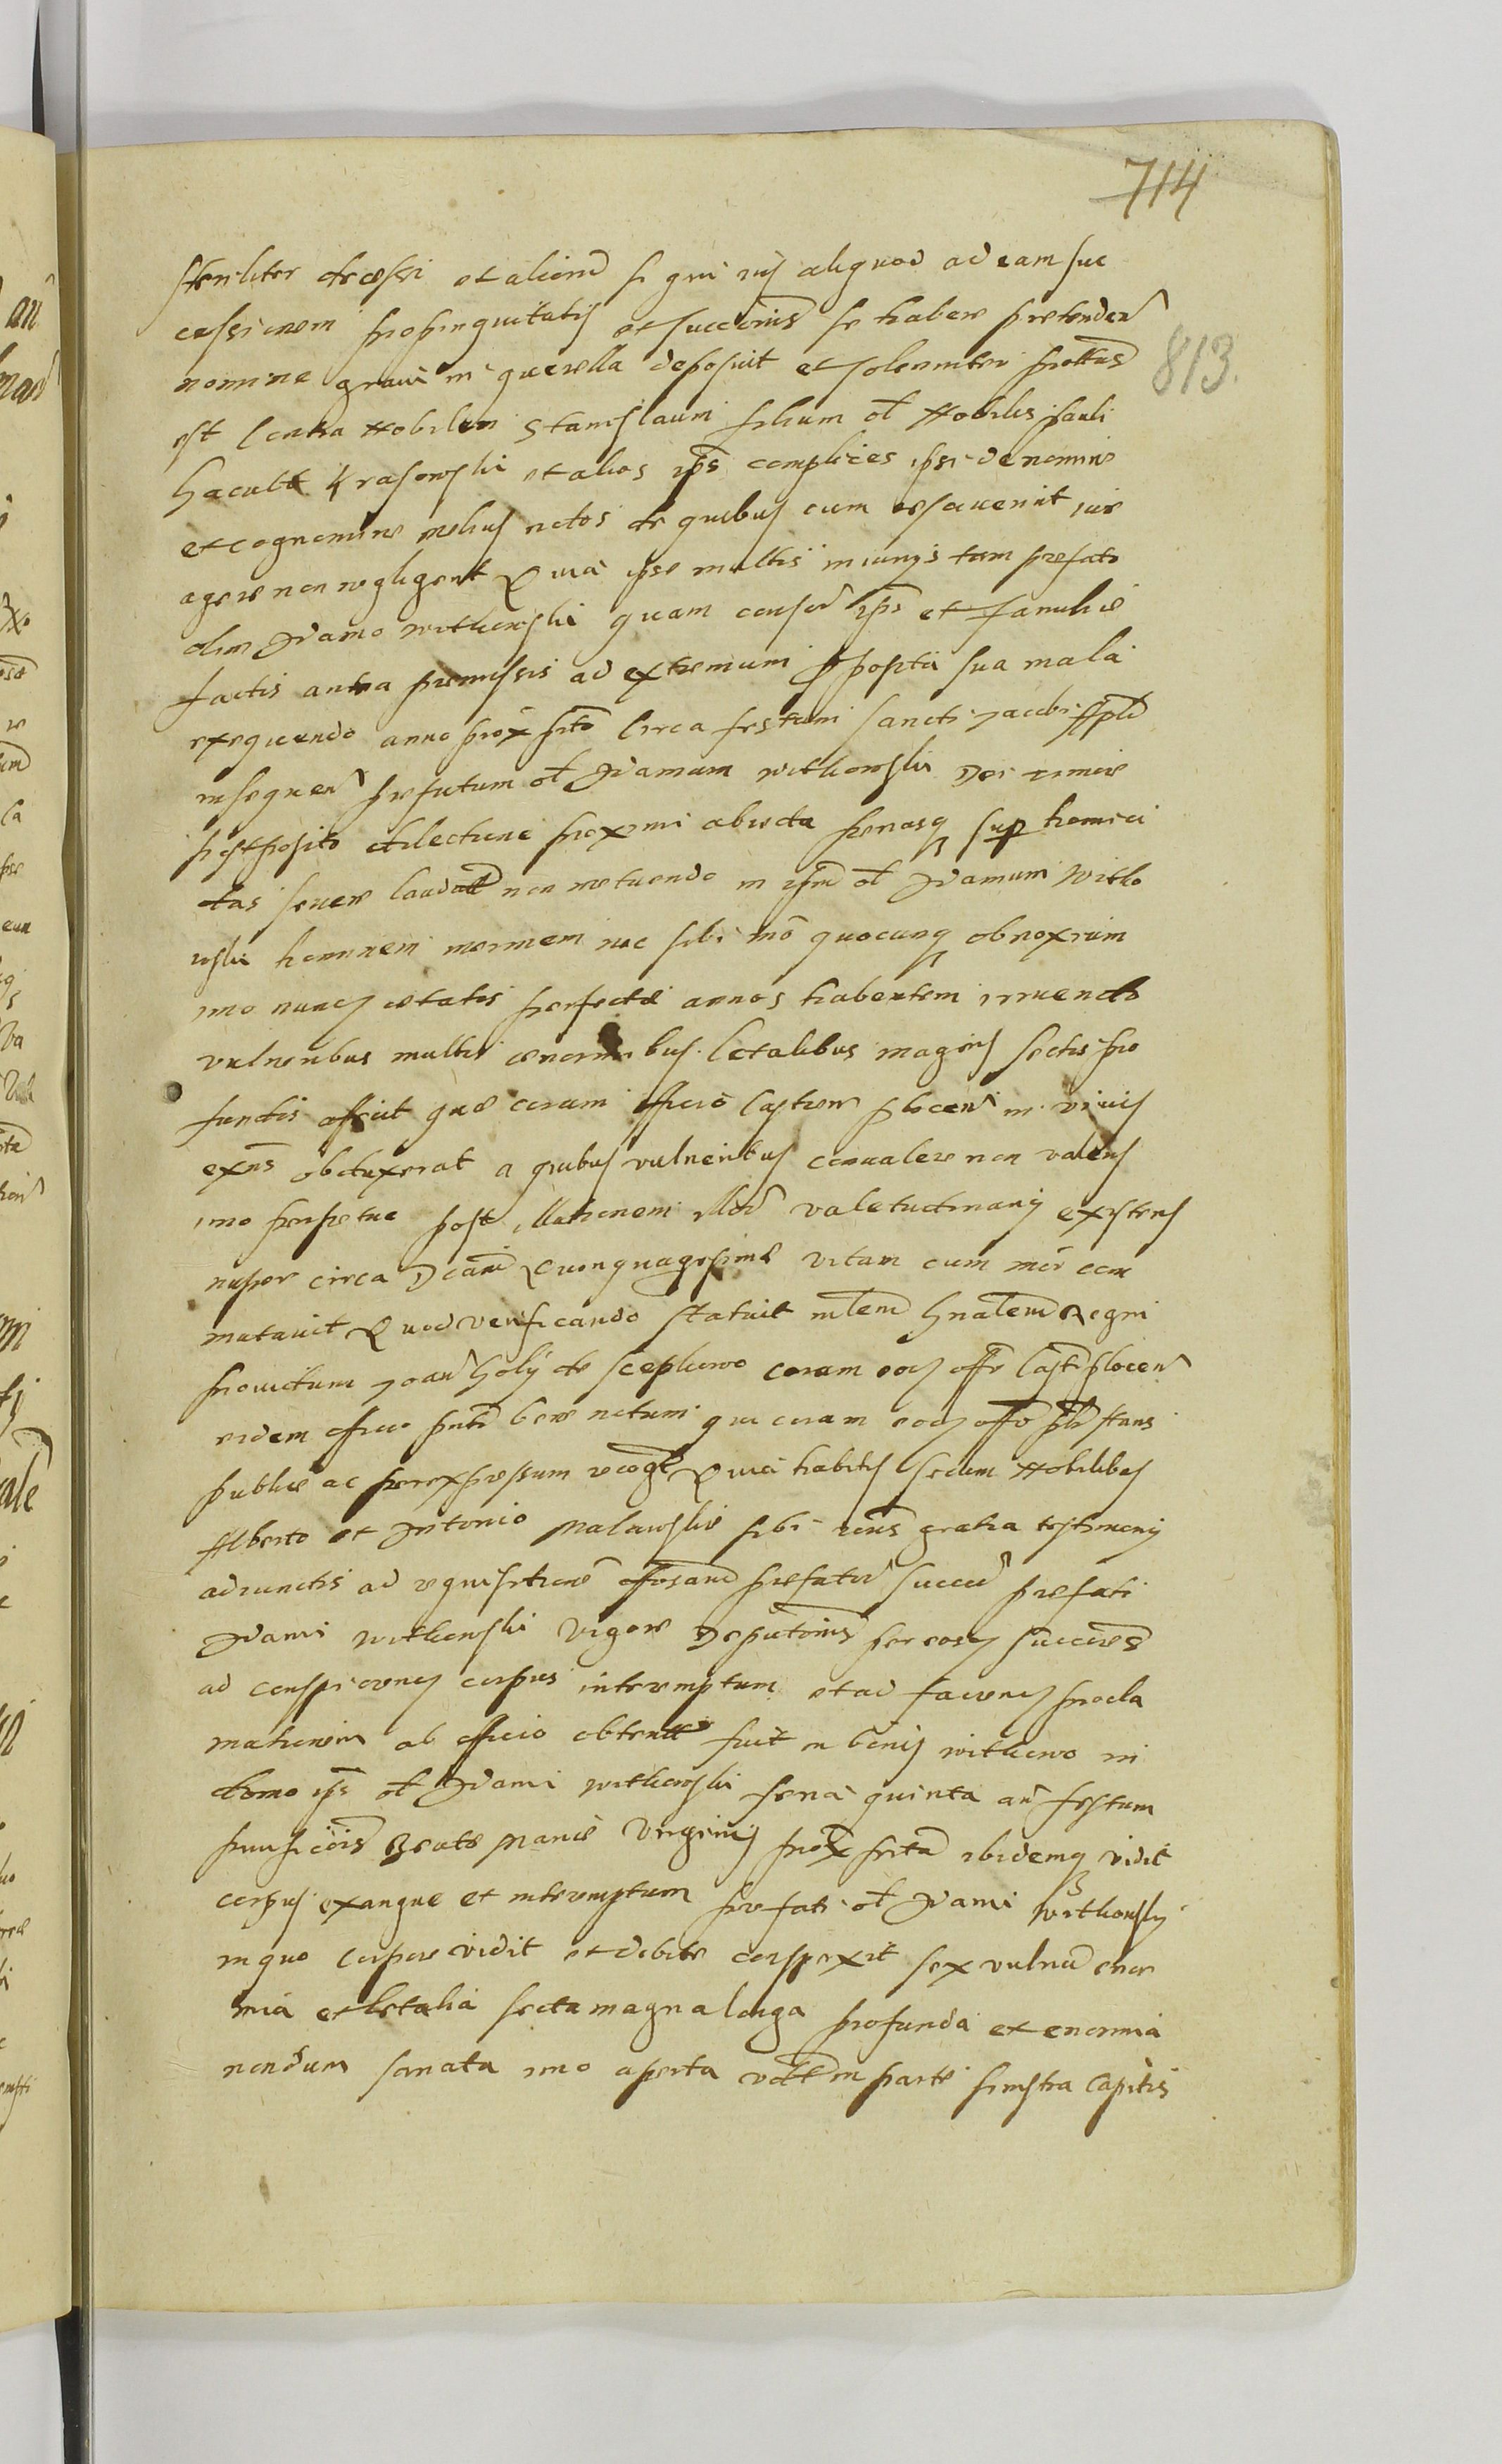 714
813.
steriliter decessi et aliorũ si qui ius aliquod ad eam suc
cessionem propinquitatis et succõnis se habere prętenden̄
nomine gravi in querella deposuit et solenniter prottus
est Contra Nobilem Stanislaum filium ol̃ Nobilis Pauli
Krasowski et alios ips complices ipsi de nomine
et cognomine melius notos de quibus cum resciuerint iure
agere non negligent Quia ipse multis iniurijs tam prefato
olim Adamo Witkowski quam consor̃ ips et familię
factis antea premissis ad extremum proposita sua mala
exequendo anno prox prito Circa festum Sancti Jacobi Appli
prefatum ol̃ Adamum Witkowski Dei timore
postposito dilectione proximi abiecta penasq sup homici
das severe laudatt non metuendo in ipm ol̃ Adamum Witko
wski hominem inermem nec sibi mõ quocunq obnoxium
imo etatis perfectę annos habentem irruendo
vulneribus multis enormibus letalibus magnis sectis pro
fundis affecit quę coram officio Castren Plocen̄ in vivis
exñs obduxerat a quibus vulneribus convalere non valens
imo perpetue post illationem illorũ valetudinarius existens
nuper circa Dcam Quinquagesimę vitam cum mõr com
mutavit Quod verificando statuit mtem Gnalem Regni
providum Joan̄ Goly de Sceplewo coram eod offo Castri Plocen̄
eidem officio pntr bene notum qui coram eod offo pls stans
publice ac per expressum recogt Quia habitis secum Nobilibus
Alberto et Antonio Malawskie sibi gratia testimonij
adiunctis ad requisitionẽ prefator̃ succor̃ prefati
Adami Witkowski vigore Deputõnis per eosd succes
ad conspiciend corpus interemptum et ad faciend procla
mationem ab officio obtentẽ fuit in bonis Witkowo in
domo ips ol̃ Adami Witkowski feria quinta añ festum
purificõis Beate Marię Virginis prox prita ibidemq vidit
corpus exangue et interemptum prefati ol̃ Adami Witkowsky
in quo corpore vidit et debite conspexit sex vulnera enor
mia et letalia secta magna longa profunda et enormia
nondum sanata imo aperta in parte sinistra Capitis